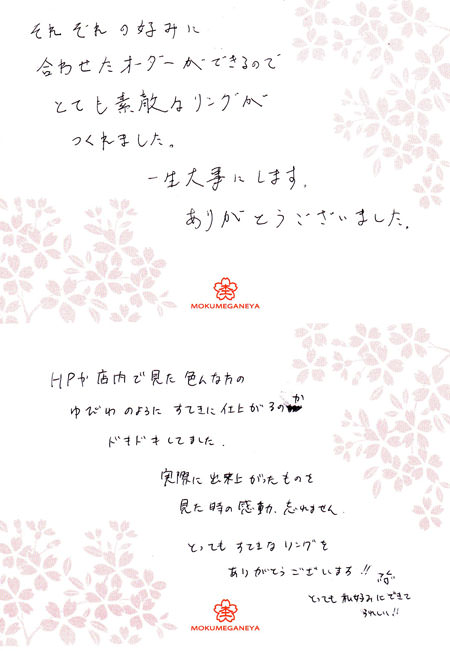 それぞれの好みに
合わせたオーダーができるので
とても素敵なリングが
つくれました。
一生大事にします。
ありがとうございました。
MOKUMEGANEYA
HPや店内で見た色んな方の
ゆびわのようにすてきに仕上がるのか
ドキドキしてました。
実際に出来上がったものを
見た時の感動、忘れません。
とってもすてきなリングを
ありがとうございまる!!
とっても私好みにできて
うれしい!!
MOKUMEGANEYA